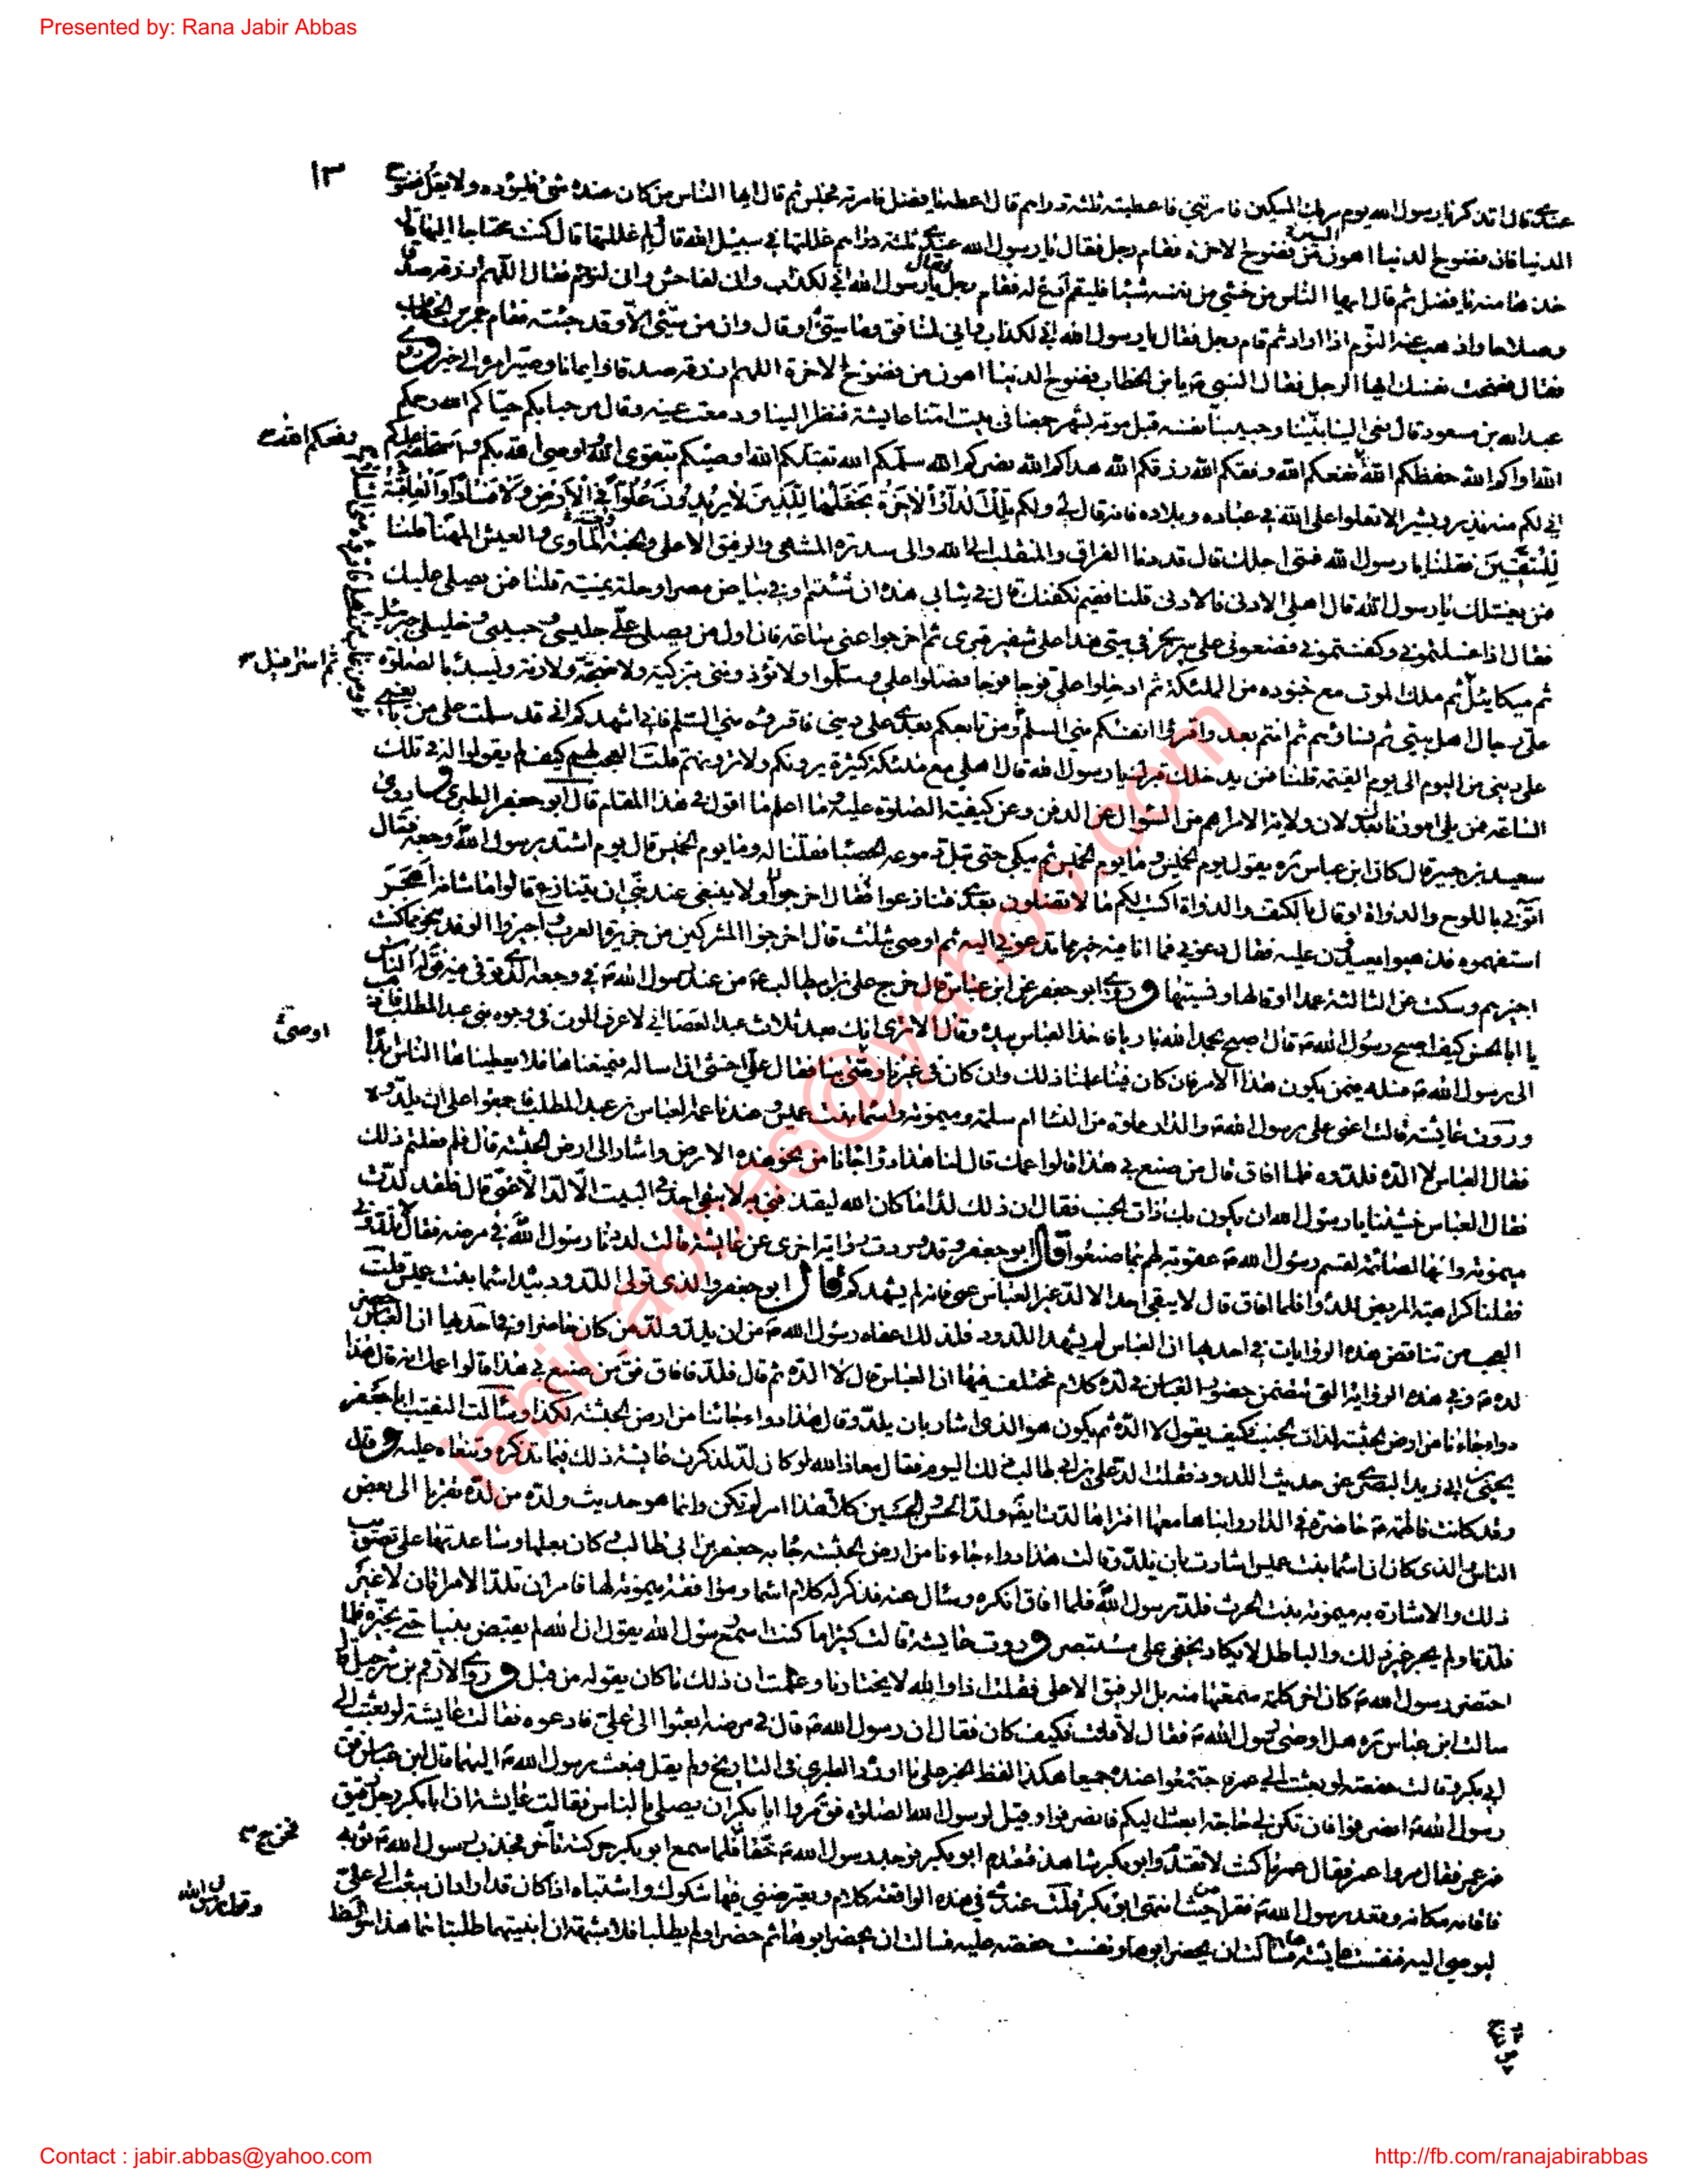 Presented by: Rana Jabir Abbas
١٣
عندك قال اتذكر يا رسول الله يوم مر بك المسكين فامرتني فاعطيته ثلثة دراهم قال اعطه يا فضل فامر به فجلس ثم قال ايها الناس من كان عنده شئ فليؤده ولا يقل فضوح
الدنيا فان فضوح الدنيا اهون من فضوح الاخرة فقام رجل فقال يا رسول الله عندي ثلثة دراهم غللتها في سبيل الله قال لم غللتها قال كنت محتاجا اليها قال
خذها منه يا فضل ثم قال ايها الناس من خشي من نفسه شيئا فليقم ادع له فقام رجل فقال يا رسول الله اني لكذاب واني لفاحش واني لنؤم فقال اللهم ارزقه صدقا
وصلاحا واذهب عنه النوم اذا اراد ثم قام رجل فقال يا رسول الله اني لكذاب واني لمنافق وما شئ او قال وان من شئ الا وقد جئته فقام عمر بن الخطاب
فقال فضحت نفسك ايها الرجل فقال النبي يا بن الخطاب فضوح الدنيا اهون من فضوح الاخرة اللهم ارزقه صدقا وايمانا وصير امره الى خير وروى
عبد الله بن مسعود قال نعى الينا نبينا وحبيبنا نفسه قبل موته بشهر جمعنا في بيت امنا عايشة فنظر الينا ودمعت عينه وقال مرحبا بكم حياكم الله رحمكم
الله اواكم الله حفظكم الله نفعكم الله وفقكم الله رزقكم الله هداكم الله نصركم الله سلمكم الله تقبلكم الله اوصيكم بتقوى الله واوصي الله بكم واستخلفه عليكم
رفعكم الله
اني لكم منه نذير وبشير الا تعلوا على الله في عباده وبلاده فانه قال لي ولكم تِلْكَ الدَّارُ الْآخِرَةُ نَجْعَلُهَا لِلَّذِينَ لَا يُرِيدُونَ عُلُوًّا فِي الْأَرْضِ وَلَا فَسَادًا وَالْعَاقِبَةُ
لِلْمُتَّقِينَ فقلنا يا رسول الله فمتى اجلك قال قد دنا الفراق والمنقلب الى الله والى سدرة المنتهى والرفيق الاعلى وجنة المأوى والعيش المهنا قلنا
فمن يغسلك يا رسول الله قال اهلي الادنى فالادنى قلنا ففيم نكفنك قال في ثيابي هذه ان شئتم او في بياض مصر او حلة يمنية قلنا فمن يصلي عليك
فقال اذا غسلتموني وكفنتموني فضعوني على سريري في بيتي هذا على شفير قبري ثم اخرجوا عني ساعة فان اول من يصلي علي جليسي وحبيبي وخليلي جبرئيل
ثم اسرافيل
ثم ميكائيل ثم ملك الموت مع جنوده من الملئكة ثم ادخلوا علي فوجا فوجا فصلوا علي وسلموا ولا تؤذوني بتزكية ولا ضجة ولا رنة وليبدأ بالصلوة
علي رجال اهل بيتي ثم نساؤهم ثم انتم بعد واقرؤا انفسكم مني السلام ومن تابعكم بعدي على ديني فاقرؤه مني السلام فاني اشهدكم اني قد سلمت على من بايعني
على ديني من اليوم الى يوم القيمة قلنا فمن يدخلك قبرك يا رسول الله قال اهلي مع ملئكة كثيرة يرونكم ولا ترونهم قلت العجب لهم كيف لم يقولوا له في تلك
الساعة فمن يلي امورنا بعدك لان ولاية الامر اهم من السؤال عن الدفن وعن كيفية الصلوة عليه وما اعلم ما اقول في هذا المقام قال ابو جعفر الطبري وروى
سعيد بن جبير قال كان ابن عباس ره يقول يوم الخميس وما يوم الخميس ثم يبكي حتى تبل دموعه الحصبا فقلنا له وما يوم الخميس قال يوم اشتد برسول الله وجعه فقال
ائتوني باللوح والدواة او قال بالكتف والدواة اكتب لكم ما لا تضلون بعدي فتنازعوا فقال اخرجوا ولا ينبغي عند نبي ان يتنازع قالوا ما شانه اهجر
استفهموه فذهبوا يعيدون عليه فقال دعوني فما انا فيه خير مما تدعوني اليه ثم اوصى بثلث قال اخرجوا المشركين من جزيرة العرب واجيزوا الوفد بنحو ما كنت
اجيزهم وسكت عن الثالثة عمدا او قالها ونسيتها وروى ابو جعفر عن ابن عباس قال خرج علي بن ابي طالب ع من عند رسول الله في وجعه الذي توفي فيه فقال له الناس
يا ابا الحسن كيف اصبح رسول الله قال اصبح بحمد الله باريا فاخذ العباس بيده وقال الا ترى انك بعد ثلاث عبد العصا اني لاعرف الموت في وجوه بني عبد المطلب فاذهب
الى رسول الله فسله فيمن يكون هذا الامر فان كان فينا علمنا ذلك وان كان في غيرنا وصى بنا فقال علي اخشى ان اساله فيمنعناها فلا يعطيناها الناس ابدا
اوصى
وروت عايشة قالت اغمي على رسول الله والدار مملوة من النسا ام سلمة وميمونة واسما بنت عميس وعندنا عمه العباس بن عبد المطلب فاجمعوا على ان يلدوه
فقال العباس لا الده فلدوه فلما افاق قال من صنع بي هذا قالوا عمك قال لنا هذا دواء جاءنا من نحو هذه الارض واشار الى ارض الحبشة قال فلم فعلتم ذلك
فقال العباس خشينا يا رسول الله ان يكون بك ذات الجنب فقال ان ذلك لداء ما كان الله ليقذفني به لا يبقى احد في البيت الا لد الا عمي قال فلقد لدت
ميمونة وانها لصائمة لقسم رسول الله عقوبة لهم بما صنعوا قال ابو جعفر وقد وردت رواية اخرى عن عايشة قالت لددنا رسول الله في مرضه فقال لا تلدوني
فقلنا كراهية المريض للدواء فلما افاق قال لا يبقى احد الا لد غير العباس عمي فانه لم يشهدكم قال ابو جعفر والذي تولى اللدود بيده اسما بنت عميس قلت
العجب من تناقض هذه الروايات في احدها ان العباس لم يشهد اللدود فلذلك اعفاه رسول الله من ان يلد ولد من كان حاضرا وفي احدها ان العباس حضر
لده وفي هذه الرواية التي تتضمن حضور العباس في لده كلام مختلف فيها ان العباس قال لا الده ثم قال فلد فافاق فقال من صنع بي هذا قالوا عمك انه قال هذا
دواء جاءنا من ارض الحبشة لذات الجنب فكيف يقول لا الده ثم يكون هو الذي اشار بان يلد وقال هذا دواء جائنا من ارض الحبشة لكذا وسألت النقيب ابا جعفر
يحيى بن ابي زيد البصري عن حديث اللدود فقلت الد علي بن ابي طالب ذلك اليوم فقال معاذ الله لو كان لد لذكرت عايشة ذلك فيما تذكره وتنعاه عليه وقال
وقد كانت فاطمة حاضرة في الدار وابناها معها افتراها لدت ايضا ولد الحسن والحسين كلا هذا امر لم يكن وانما هو حديث ولده من ولده تقربا الى بعض
الناس الذي كان ان اسما بنت عميس اشارت بان يلد وقالت هذا دواء جاءنا من ارض الحبشة جا به جعفر بن ابي طالب كان بعلها وساعدتها على تصويب
ذلك والاشارة به ميمونة بنت الحرث فلد رسول الله فلما افاق انكره وسأل عنه فذكر له كلام اسما وموافقة ميمونة لها فامر ان تلد الامراتان لا غير
فلدتا ولم يجر غير ذلك والباطل لا يكاد يخفى على مستبصر وروت عايشة قالت كثيرا ما كنت اسمع رسول الله يقول ان الله لم يقبض نبيا حتى يخيره فلما
احتضر رسول الله كان اخر كلمة سمعتها منه بل الرفيق الاعلى فقلت اذا والله لا يختارنا وعلمت ان ذلك ما كان يقوله من قبل وروى الارقم بن شرحبيل قال
سالت ابن عباس ره هل اوصى رسول الله فقال لا قلت فكيف كان فقال ان رسول الله قال في مرضه ابعثوا الى علي فادعوه فقالت عايشة لو بعثت الى
ابي بكر وقالت حفصة لو بعثت الى عمر فاجتمعوا عنده جميعا هكذا لفظ الخبر على ما اورده الطبري في التاريخ ولم يقل فبعث رسول الله اليهما قال ابن عباس فقال
رسول الله انصرفوا فان تكن لي حاجة ابعث اليكم فانصرفوا وقيل لرسول الله الصلوة فقال مروا ابا بكر ان يصلي بالناس فقالت عايشة ان ابا بكر رجل رقيق
فخرج
فمر عمر فقال مروا عمر فقال عمر ما كنت لاتقدم وابو بكر شاهد فتقدم ابو بكر فوجد رسول الله خفة فلما سمع ابو بكر حركته تأخر فجذب رسول الله ثوبه
فاقامه مكانه وقعد رسول الله فقرا من حيث انتهى ابو بكر قلت عندي في هذه الواقعة كلام ويعترضني فيها شكوك واشتباه اذا كان قد اراد ان يبعث الى علي
ليوصي اليه فنفست عايشة عليه فسالت ان يحضر ابوها ونفست حفصة عليه فسالت ان يحضر ابوها ثم حضرا ولم يطلبا فلا شبهة ان ابنتيهما طلبتاهما هذا هو الظاهر
jabir.abbas@yahoo.com
Contact : jabir.abbas@yahoo.com
http://fb.com/ranajabirabbas